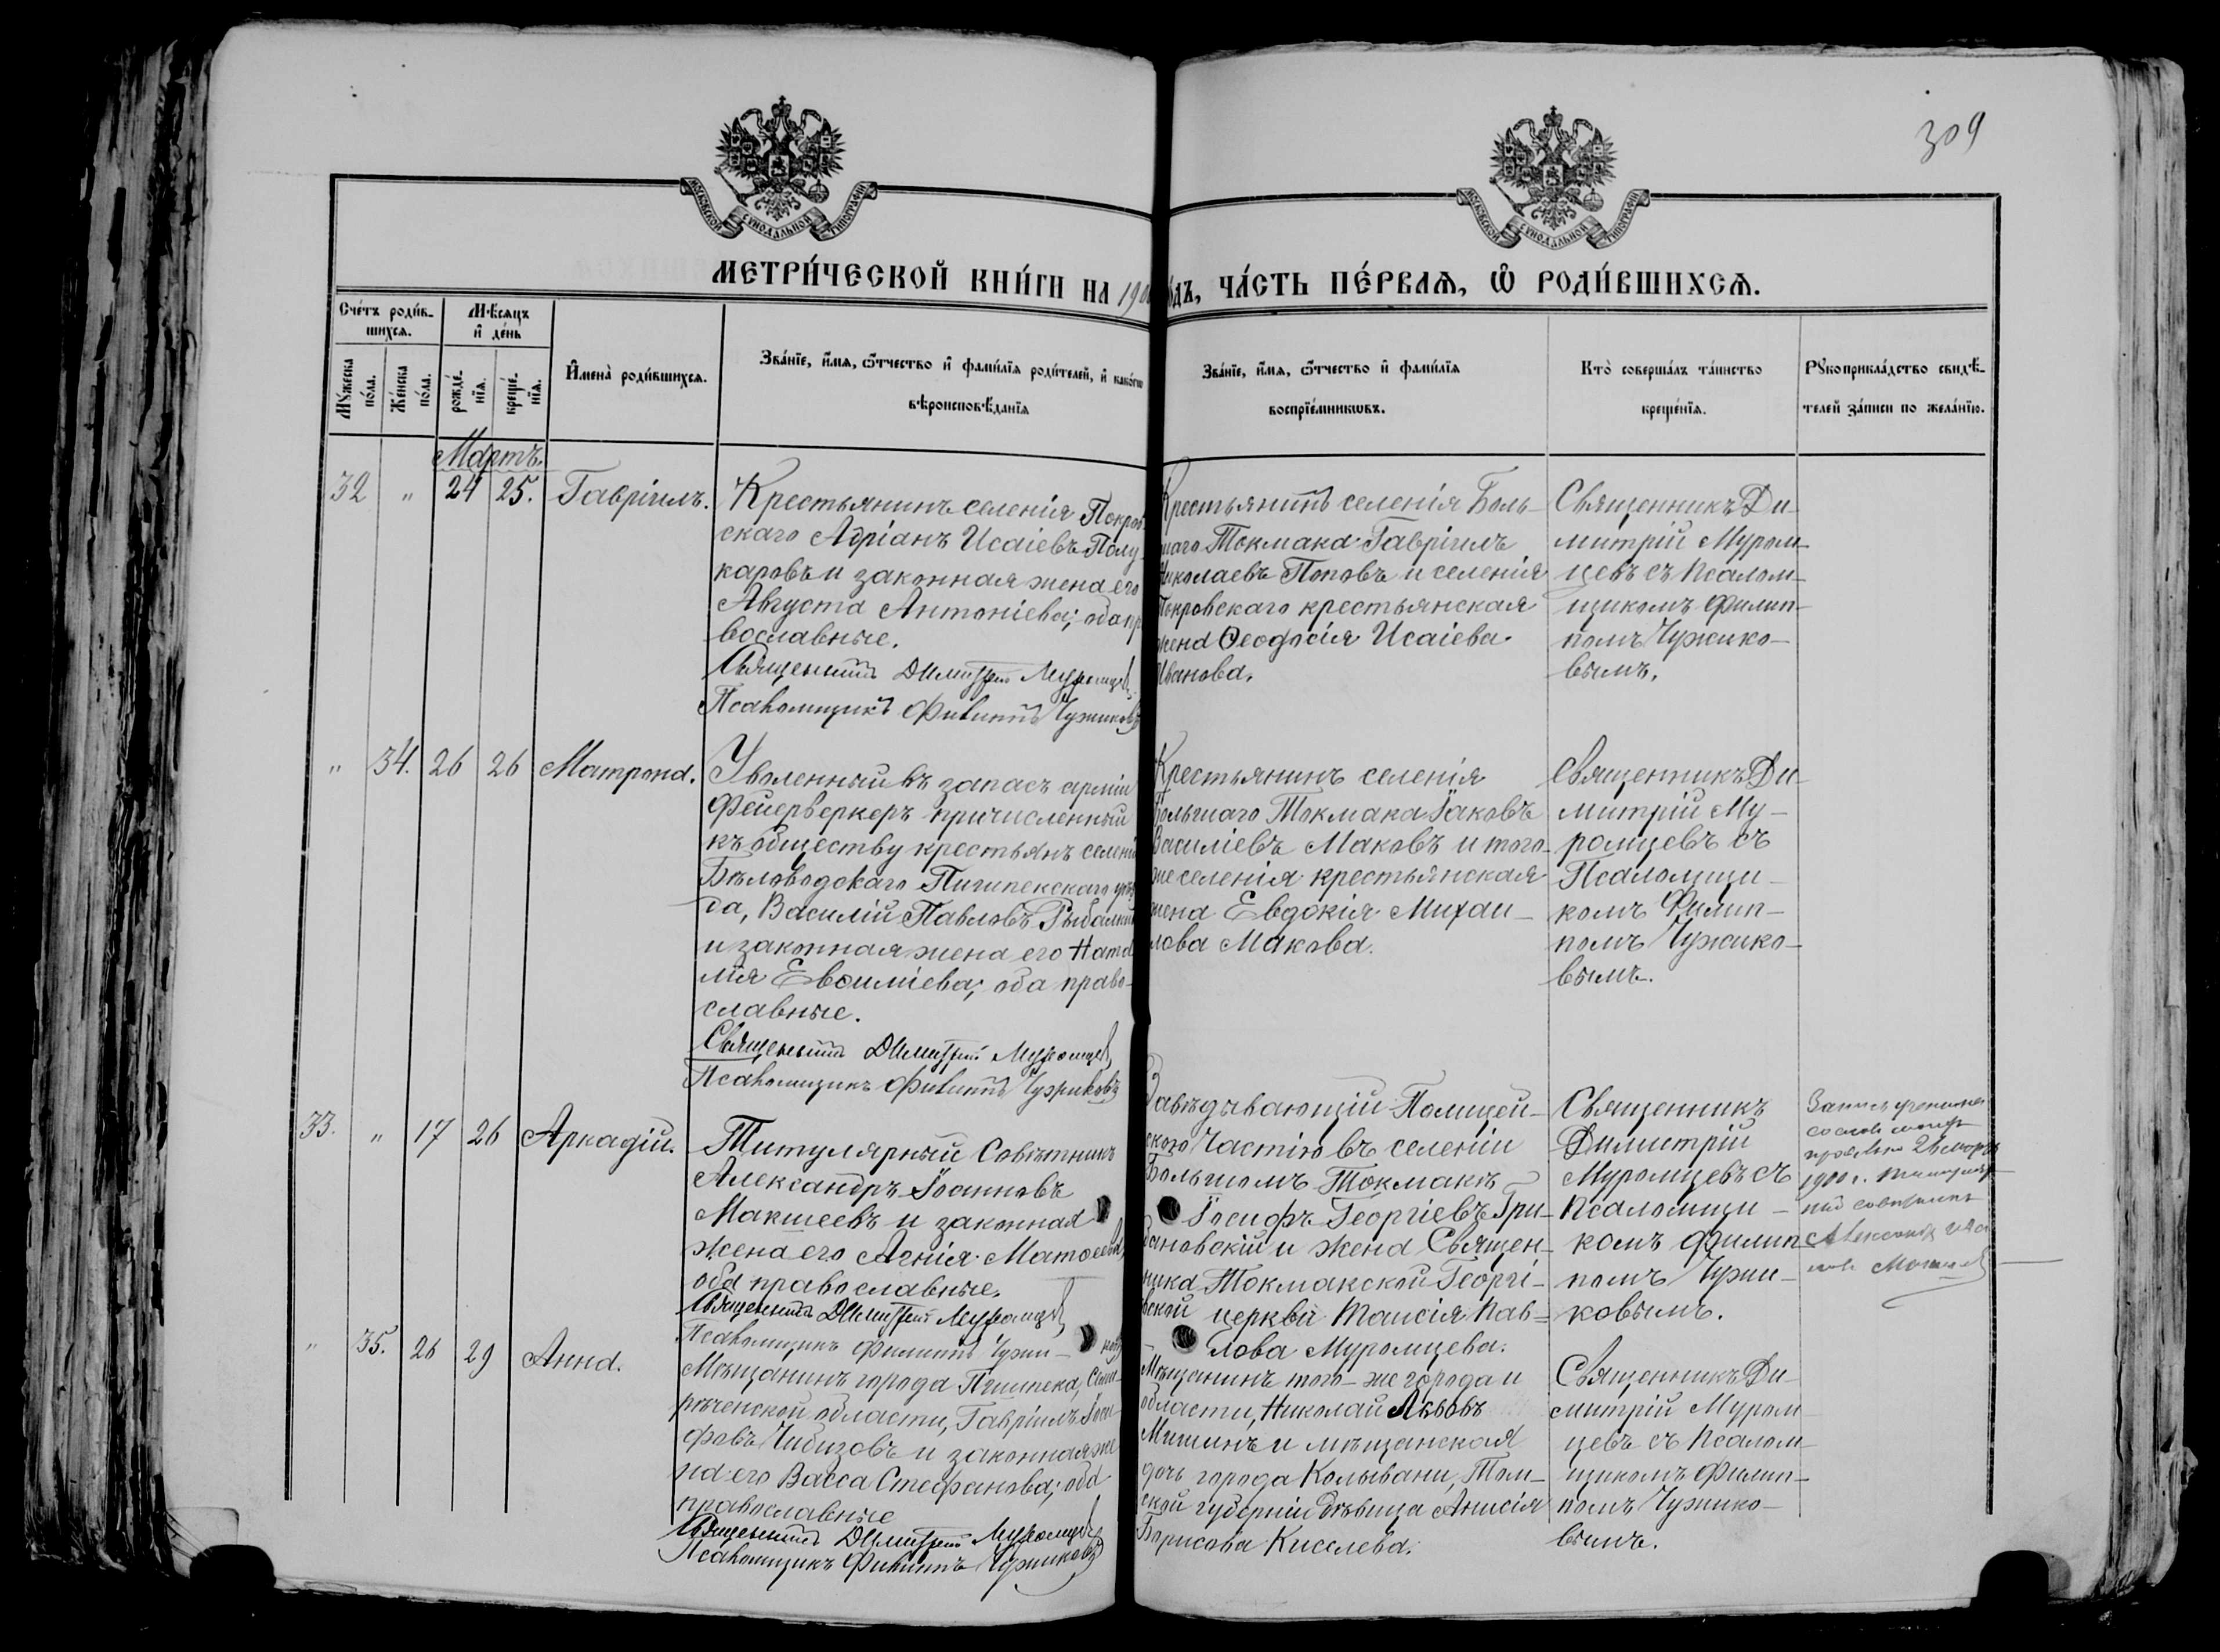 309
МОСКОВСКОЙ СѴНОДАЛЬНОЙ ТИПОГРАФІИ
МОСКОВСКОЙ СѴНОДАЛЬНОЙ ТИПОГРАФІИ
МЕТРИ́ЧЕСКОЙ КНИ́ГИ НА 1900
ГОДЪ, ЧА́СТЬ ПЕ́РВАѦ, Ѿ РОДИ́ВШИХСѦ.
Сче́тъ роди́в-
шихсѧ.
Мѣсѧцъ
и҆ де́нь
Мꙋ́жеска
по́ла.
Же́нска
по́ла.
рожде́-
нїѧ.
креще́-
нїѧ.
И҆мена̀ роди́вшихсѧ.
Зва́нїе, и҆́мѧ, ѻ҆́тчество и҆ фами́лїѧ роди́телей, и҆ како́гѡ
вѣроисповѣ́данїѧ
Зва́нїе, и҆́мѧ, ѻ҆́тчество и҆ фами́лїѧ
воспрїе́мникѡвъ.
Кто̀ соверша́лъ та́инство
креще́нїѧ.
Рꙋкоприкла́дство свидѣ́-
телей за́писи по жела́нїю.
Мартъ.
32 " 24 25. Гавріилъ.
Крестьянинъ селенія Покров
скаго Адріанъ Исаіевъ Полу-
каровъ и законная жена его
Августа Антоніева; оба пр
вославные.
Священникъ Димитрій Муромцев
Псаломщикъ Филиппъ Чужиковъ
Крестьянинъ селенія Боль-
шаго Токмака Гавріилъ
Николаевъ Поповъ и селенія
Покровскаго крестьянская
жена Ѳеодосія Исаіева
Иванова.
Священникъ Ди-
митрій Муром-
цевъ съ псалом-
щикомъ Филип-
помъ Чужико-
вымъ.
" 34. 26 26 Матрона.
Уволенный въ запасъ арміи
Фейерверкеръ причисленный
къ обществу крестьянъ селенія
Бѣловодскаго Пишпекскаго уѣз
да, Василій Павловъ Рыбалкин
и законная жена его Ната
лія Евсиліева; оба право-
славные.
Священникъ Димитрій Муромцев
Псаломщикъ Филиппъ Чужиковъ
Крестьянинъ селенія
Большаго Токмака Іаковъ
Василіевъ Маковъ и того-
же селенія крестьянская
жена Евдокія Михаи-
лова Макова.
Священникъ Ди-
митрій Му-
ромцевъ съ
Псаломщи-
комъ Филип-
помъ Чужико-
вымъ.
33. " 17 26 Аркадій.
Титулярный Совѣтникъ
Александръ Іоанновъ
Макшеевъ и законная
жена его Агнія Матѳеева
оба православные.
Священникъ Димитрій Муромцев
Псаломщикъ Филиппъ Чужи-
Завѣдывающій Полицей-
скою Частію въ селеніи
Большомъ Токмакѣ
Іосифъ Георгіевъ Гри-
бановскій и жена Священ-
ника Токмакской Георгі-
вской церкви Таисія Пав-
лова Муромцева.
Священникъ
Димитрій
Муромцевъ съ
псаломщи-
комъ Филип-
помъ Чужи-
ковымъ.
1900 г.
" 35. 26 29 Анна.
Мѣщанинъ города Пишпека, Семи-
рѣченской области, Гавріилъ Іоси-
фовъ Чибизовъ и законная же
на его Васса Стефанова; оба
православные
Священникъ Димитрій Муромцев
Псаломщикъ Филиппъ Чужиковъ
Мѣщанинъ того-же города и
области, Николай Львовъ
Мишинъ и мѣщанская
дочь города Колывани, Том-
ской губерніи дѣвица Анисія
Борисова Киселева.
Священникъ Ди-
митрій Муром-
цевъ съ псалом-
щикомъ Филип-
помъ Чужико-
вымъ.